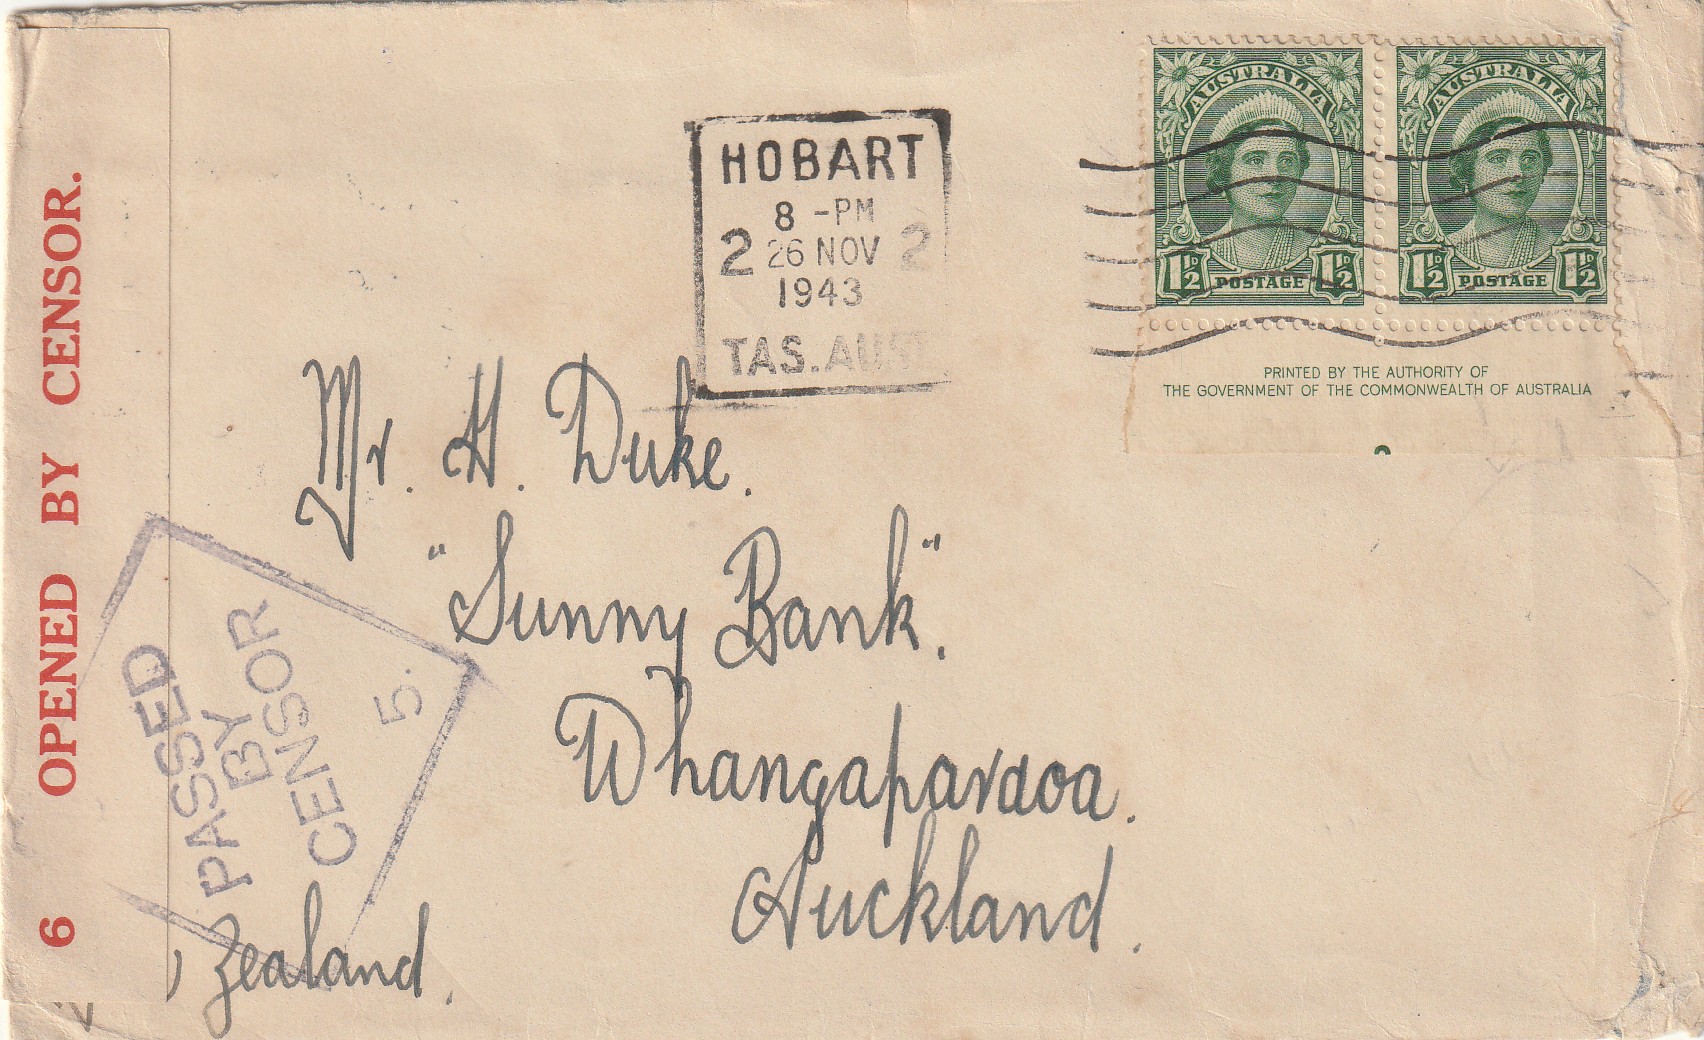 6 OPENED BY CENSOR.
HOBART
8 -PM
2 26 NOV 2
1943
TAS. AUST
AUSTRALIA
1½D POSTAGE 1½D
AUSTRALIA
1½D POSTAGE 1½D
PRINTED BY THE AUTHORITY OF
THE GOVERNMENT OF THE COMMONWEALTH OF AUSTRALIA
Mr. H Duke.
"Sunny Bank".
Whangaparaoa.
Auckland.
Zealand.
PASSED
BY
CENSOR
5.